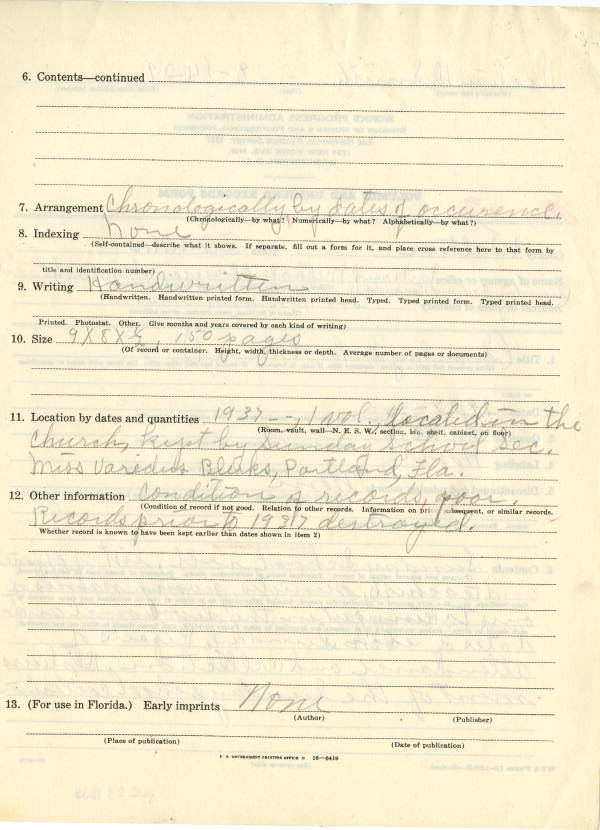 6. Contents—continued
7. Arrangement Chronologically by dates of occurence.
(Chronologically—by what? Numerically—by what? Alphabetically—by what?)
8. Indexing None
(Self-contained—describe what it shows. If separate, fill out a form for it, and place cross reference here to that form by
title and identification number)
9. Writing Handwritten
(Handwritten. Handwritten printed form. Handwritten printed head. Typed. Typed printed form. Typed printed head.
Printed. Photostat. Other. Give months and years covered by each kind of writing)
10. Size 9 X 8 X ½, 150 pages
(Of record or container. Height, width, thickness or depth. Average number of pages or documents)
11. Location by dates and quantities 1937 – –, 1 vol., located in the
(Room, vault, wall—N. E. S. W., section, bin, shelf, cabinet, on floor)
church, kept by Sunday School Sec.
Miss Blinks, Portland, Fla.
12. Other information Condition of records, poor.
(Condition of record if not good. Relation to other records. Information on prior, subsequent, or similar records.
Records prior to 1937 destroyed.
Whether record is known to have been kept earlier than dates shown in item 2)
13. (For use in Florida.) Early imprints None
(Author) (Publisher)
(Place of publication) (Date of publication)
U. S. GOVERNMENT PRINTING OFFICE 16—6419